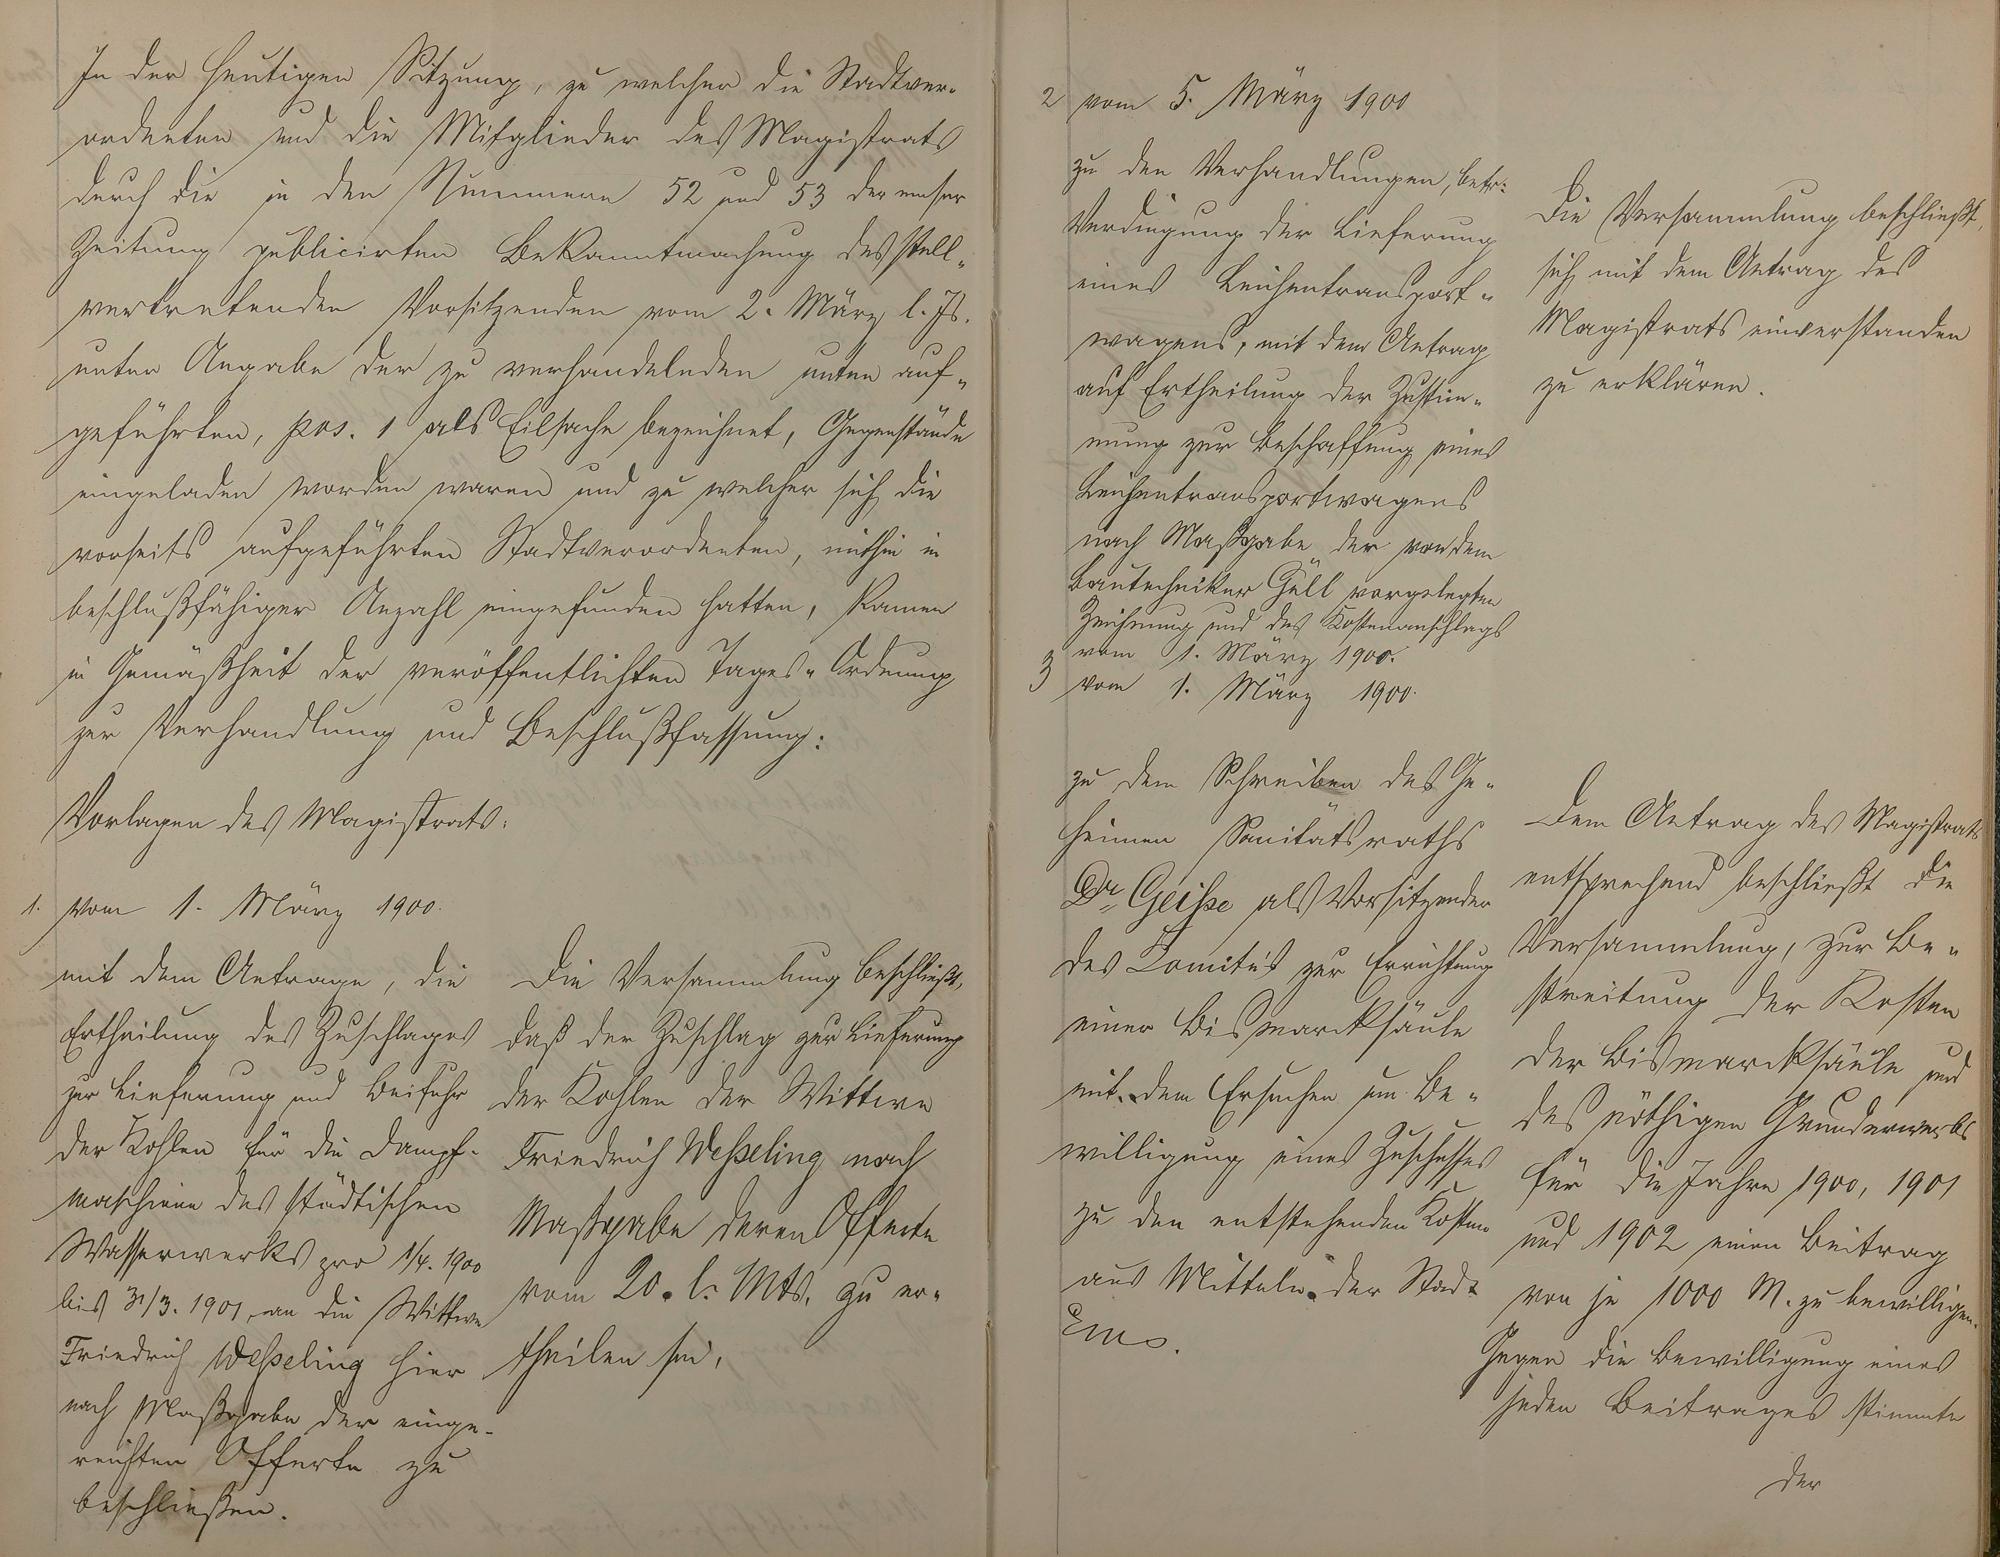 In der heutigen Sitzung, zu welcher die Stadtver-
ordneten und die Mitglieder des Magistrats
durch die in den Nummern 52 und 53 der emser
Zeitung publicirten Bekanntmachung des stell-
vertretenden Vorsitzenden vom 2. März l. Js.
unter Angabe der zu verhandelnden unten auf-
geführten, pos. 1 als Eilsache bezeichnet, Gegenstände
eingeladen worden waren und zu welcher sich die
vorseits aufgeführten Stadtverordneten, mithin in
beschlußfähiger Anzahl eingefunden hatten, kamen
in Gemäßheit der veröffentlichten Tages-Ordnung
zur Verhandlung und Beschlußfassung:
Vorlagen des Magistrats:
1. vom 1. März 1900.
mit dem Antrage, die
Ertheilung des Zuschlages
zur Lieferung und Beifuhr
der Kohlen für die Dampf-
maschine des städtischen
Wasserwerks pro 1/4. 1900
bis 31/3. 1901, an die Wittwe
Friedrich Weßeling hier
nach Maßgabe der einge-
reichten Offerte zu
beschließen.
Die Versammlung beschließt,
daß der Zuschlag zur Lieferung
der Kohlen der Wittwe
Friedrich Weßeling nach
Maßgabe deren Offerte
vom 20. l. Mts. zu er-
theilen sei.
2 vom 5. März 1900
zu den Verhandlungen, betr.
Verdingung der Lieferung
eines Leichentransport-
wagens, mit dem Antrag
auf Ertheilung der Zustim-
mung zur Beschaffung eines
Leichentransportwagens
nach Maßgabe der von dem
Bautechniker Güll vorgelegten
Zeichnung und des Kostenanschlags
vom 1. März 1900.
Die Versammlung beschließt,
sich mit dem Antrag des
Magistrats einverstanden
zu erklären.
3 vom 1. März 1900.
zu dem Schreiben des Ge-
heimen Sanitätsraths
Dr. Geiße als Vorsitzender
des Comités zur Errichtung
einer Bismarcksäule
mit dem Ersuchen um Be-
willigung eines Zuschusses
zu den entstehenden Kosten
aus Mitteln der Stadt
Ems.
Dem Antrag des Magistrats
entsprechend beschließt die
Versammlung, zur Be-
streitung der Kosten
der Bismarcksäule und
des nöthigen Grunderwerbs
für die Jahre 1900, 1901
und 1902 einen Beitrag
von je 1000 M. zu bewilligen.
Gegen die Bewilligung eines
jeden Beitrages stimmte
der